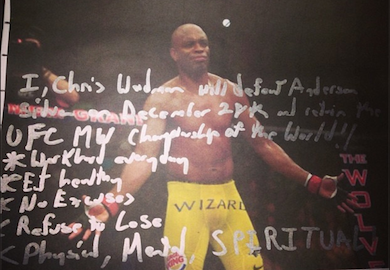 I, Chris Weidman will defeat Anderson
Silva on December 28th and retain the
UFC MW Championship of the World!!
* Work hard everyday
* Eat healthy
* No Excuses
* Refuse to Lose
* Physical, Mental, SPIRITUAL
WIZARD
THE
WOLVE